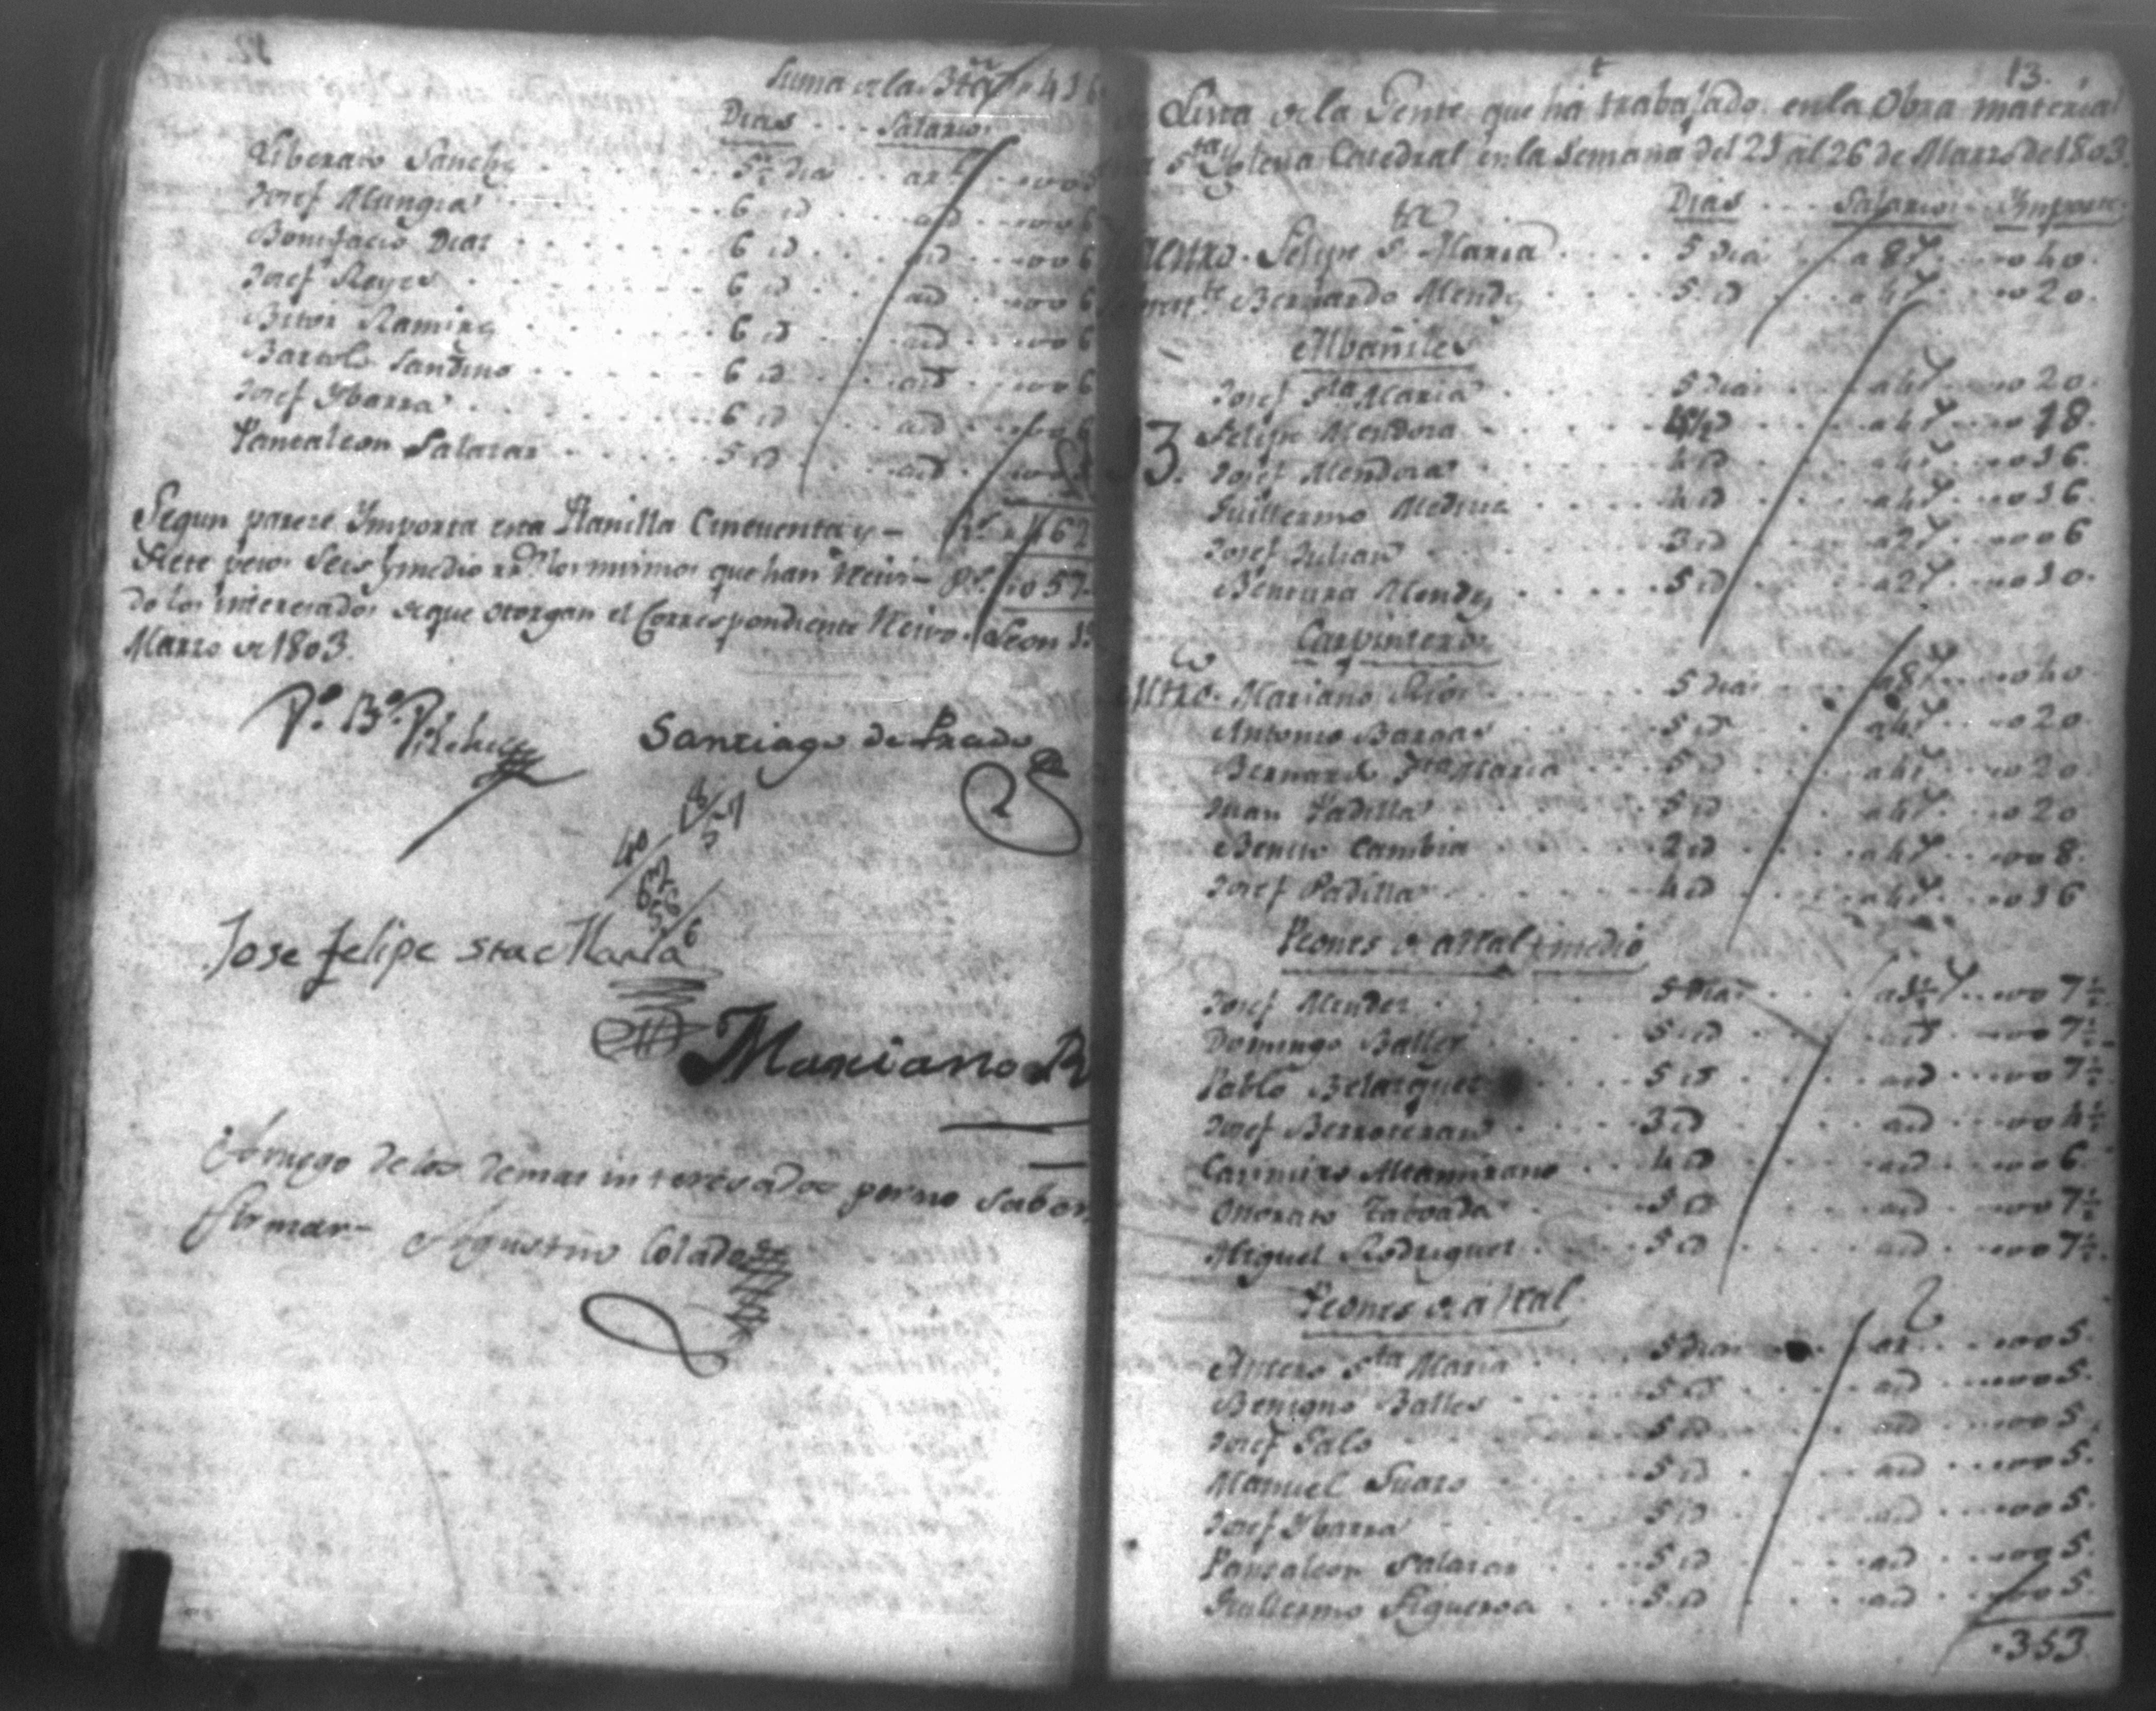 Suma de la Bta 416
Dias Salario
Liberato Sanchz 5½ dia a 1
Josef Mungia 6 id id 6
Bonifacio Dias 6 id id 6
Josef Reyes 6 id id 6
Bitor Ramirz 6 id id 6
Bartolo Sandino 6 id id 6
Josef Ybarra 6 id id 6
Pantaleon Salazar 5 id id
Segun parece Ymporta esta Planilla Cincuenta y 462
Siete pesos Seis y medio rr.s los mismos que han recivi- p.s 057
do los interesados de que otorgan el Correspondiente recivo. Leon
Marzo de 1803.
P.o B.o
Santiago de Prado
18/57
40
Jose felipe sta Maria
Mariano R
A ruego de los demas interesados por no saber
firmar Agustin Colado
13.
Lista de la Gente que ha trabajado en la Obra material
Sta Yglecia Catedral en la Semana del 21 al 26 de Marzo de 1803.
Dias Salario Ymporte
Maestro. Felipe S.ta Maria 5 dia a 8 r 040.
Bernardo Mendz 5 id a 4 r 020.
Albañiles
Josef Sta Maria 5 dias a 4 r 020.
Felipe Mendoza 4½ id a 4 r 018.
13. Josef Mendoza 4 id a 4 r 016.
Guillermo Medina 4 id a 4 r 016.
Josef Julian 3 id a 2 r 006
Bentura Mendz 5 id a 2 r 010.
Carpinteros
Mtro. Mariano Rios 5 dias a 8 r 040
Antonio Bargas 5 id a 4 r 020
Bernardo Sta Maria 5 id a 4 r 020
Juan Padilla 5 id a 4 r 020
Benito Cambia 2 id a 4 r 008.
Josef Padilla 4 id a 4 r 016
Peones de a real y medio
Josef Mendez 5 dias a 1½ r 007½
Domingo Balles 5 id id 007½
Pablo Belasquez 5 id id 007½
Josef Berroteran 3 id id 004½
Casimiro Altamirano 4 id id 006
Onorato Taboada 5 id id 007½
Miguel Rodriguez 5 id id 007½
Peones de a real
Antero Sta Maria 5 dias a 1 005.
Benigno Balles 5 id id 005.
Josef Galo 5 id id 005.
Manuel Suazo 5 id id 005.
Josef Ybarra 5 id id 005.
Pantaleon Salazar 5 id id 005.
Guillermo Figueroa 5 id id 005.
353